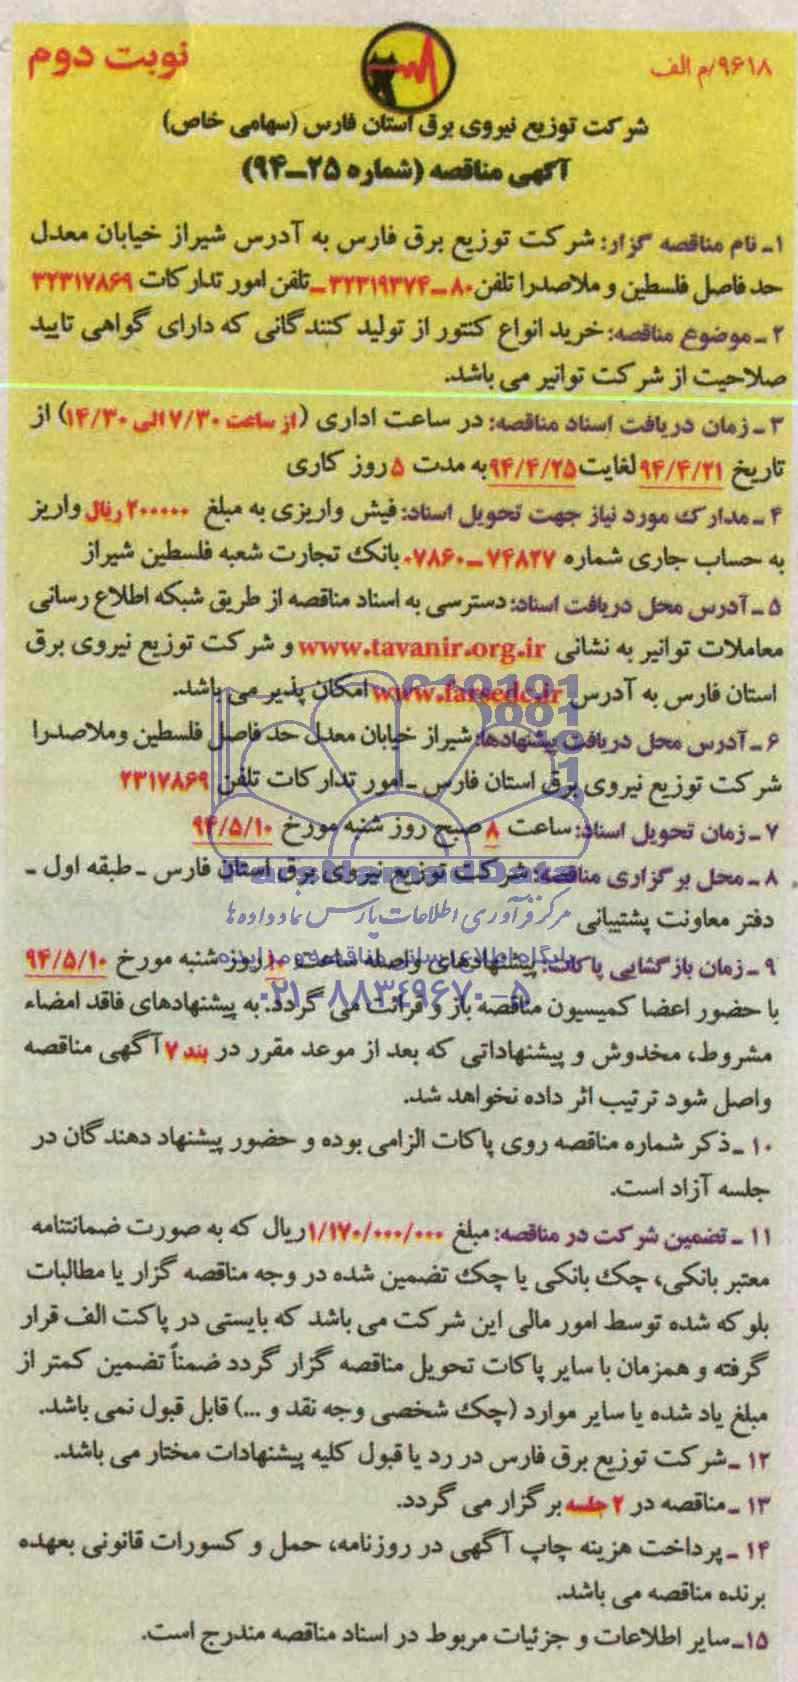 ۹۶۱۸/م الف
نوبت دوم
شرکت توزیع نیروی برق استان فارس (سهامی خاص)
آگهی مناقصه (شماره ۲۵ــ۹۴)
۱ـ نام مناقصه گزار: شرکت توزیع برق فارس به آدرس شیراز خیابان معدل
حد فاصل فلسطین و ملاصدرا تلفن ۸۰ــ۳۲۳۱۹۳۷۴ ــ تلفن امور تدارکات ۳۲۳۱۷۸۶۹
۲ ـ موضوع مناقصه: خرید انواع کنتور از تولید کنندگانی که دارای گواهی تایید
صلاحیت از شرکت توانیر می باشد.
۳ ـ زمان دریافت اسناد مناقصه: در ساعت اداری (از ساعت ۷/۳۰ الی ۱۴/۳۰) از
تاریخ ۹۴/۴/۲۱ لغایت ۹۴/۴/۲۵ به مدت ۵ روز کاری
۴ ـ مدارک مورد نیاز جهت تحویل اسناد: فیش واریزی به مبلغ ۲۰۰۰۰۰ ریال واریز
به حساب جاری شماره ۷۴۸۲۷ــ۰۷۸۶۰ بانک تجارت شعبه فلسطین شیراز
۵ ـ آدرس محل دریافت اسناد: دسترسی به اسناد مناقصه از طریق شبکه اطلاع رسانی
معاملات توانیر به نشانی www.tavanir.org.ir و شرکت توزیع نیروی برق
استان فارس به آدرس www.farsedc.ir امکان پذیر می باشد.
۶ ـ آدرس محل دریافت پیشنهادها: شیراز خیابان معدل حد فاصل فلسطین وملاصدرا
شرکت توزیع نیروی برق استان فارس ـ امور تدارکات تلفن ۲۳۱۷۸۶۹
۷ ـ زمان تحویل اسناد: ساعت ۸ صبح روز شنبه مورخ ۹۴/۵/۱۰
۸ ـ محل برگزاری مناقصه: شرکت توزیع نیروی برق استان فارس ـ طبقه اول ـ
ParsNamadData
دفتر معاونت پشتیبانی
مرکز فرآوری اطلاعات پارس نماد داده ها
۹ ـ زمان بازگشایی پاکات: پیشنهادهای واصله ساعت ۱۰ روز شنبه مورخ ۹۴/۵/۱۰
پایگاه اطلاع رسانی مناقصه و مزایده
۰۲۱-۸۸۳۴۹۶۷۰-۵
با حضور اعضا کمیسیون مناقصه باز و قرائت می گردد. به پیشنهادهای فاقد امضاء
مشروط، مخدوش و پیشنهاداتی که بعد از موعد مقرر در بند ۷ آگهی مناقصه
واصل شود ترتیب اثر داده نخواهد شد.
۱۰ ـ ذکر شماره مناقصه روی پاکات الزامی بوده و حضور پیشنهاد دهندگان در
جلسه آزاد است.
۱۱ ـ تضمین شرکت در مناقصه: مبلغ ۱/۱۷۰/۰۰۰/۰۰۰ ریال که به صورت ضمانتنامه
معتبر بانکی، چک بانکی یا چک تضمین شده در وجه مناقصه گزار یا مطالبات
بلوکه شده توسط امور مالی این شرکت می باشد که بایستی در پاکت الف قرار
گرفته و همزمان با سایر پاکات تحویل مناقصه گزار گردد ضمناً تضمین کمتر از
مبلغ یاد شده یا سایر موارد (چک شخصی وجه نقد و ...) قابل قبول نمی باشد.
۱۲ ـ شرکت توزیع برق فارس در رد یا قبول کلیه پیشنهادات مختار می باشد.
۱۳ ـ مناقصه در ۲ جلسه برگزار می گردد.
۱۴ ـ پرداخت هزینه چاپ آگهی در روزنامه، حمل و کسورات قانونی بعهده
برنده مناقصه می باشد.
۱۵ـ سایر اطلاعات و جزئیات مربوط در اسناد مناقصه مندرج است.